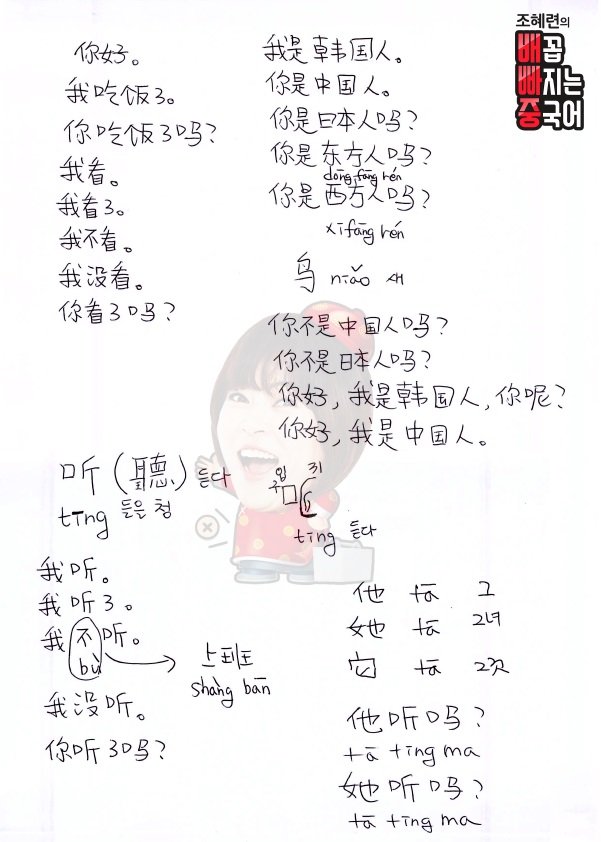 조혜련의
배꼽
빠지는
중국어
你好。
我吃饭了。
你吃饭了吗?
我看。
我看了。
我不看。
我没看。
你看了吗?
我是韩国人。
你是中国人。
你是日本人吗?
你是东方人吗?
dōng fāng rén
你是西方人吗?
xīfāng rén
鸟 niǎo 새
你不是中国人吗?
你不是日本人吗?
你好, 我是韩国人, 你呢?
你好, 我是中国人。
听 (聽) 듣다
tīng 들을 청
입 귀
구
tīng 듣다
我听。
我听了。
我不听。
bù
上班
shàng bān
我没听。
你听了吗?
他 tā 그
她 tā 그녀
它 tā 그것
他听吗?
tā tīng ma
她听吗?
tā tīng ma